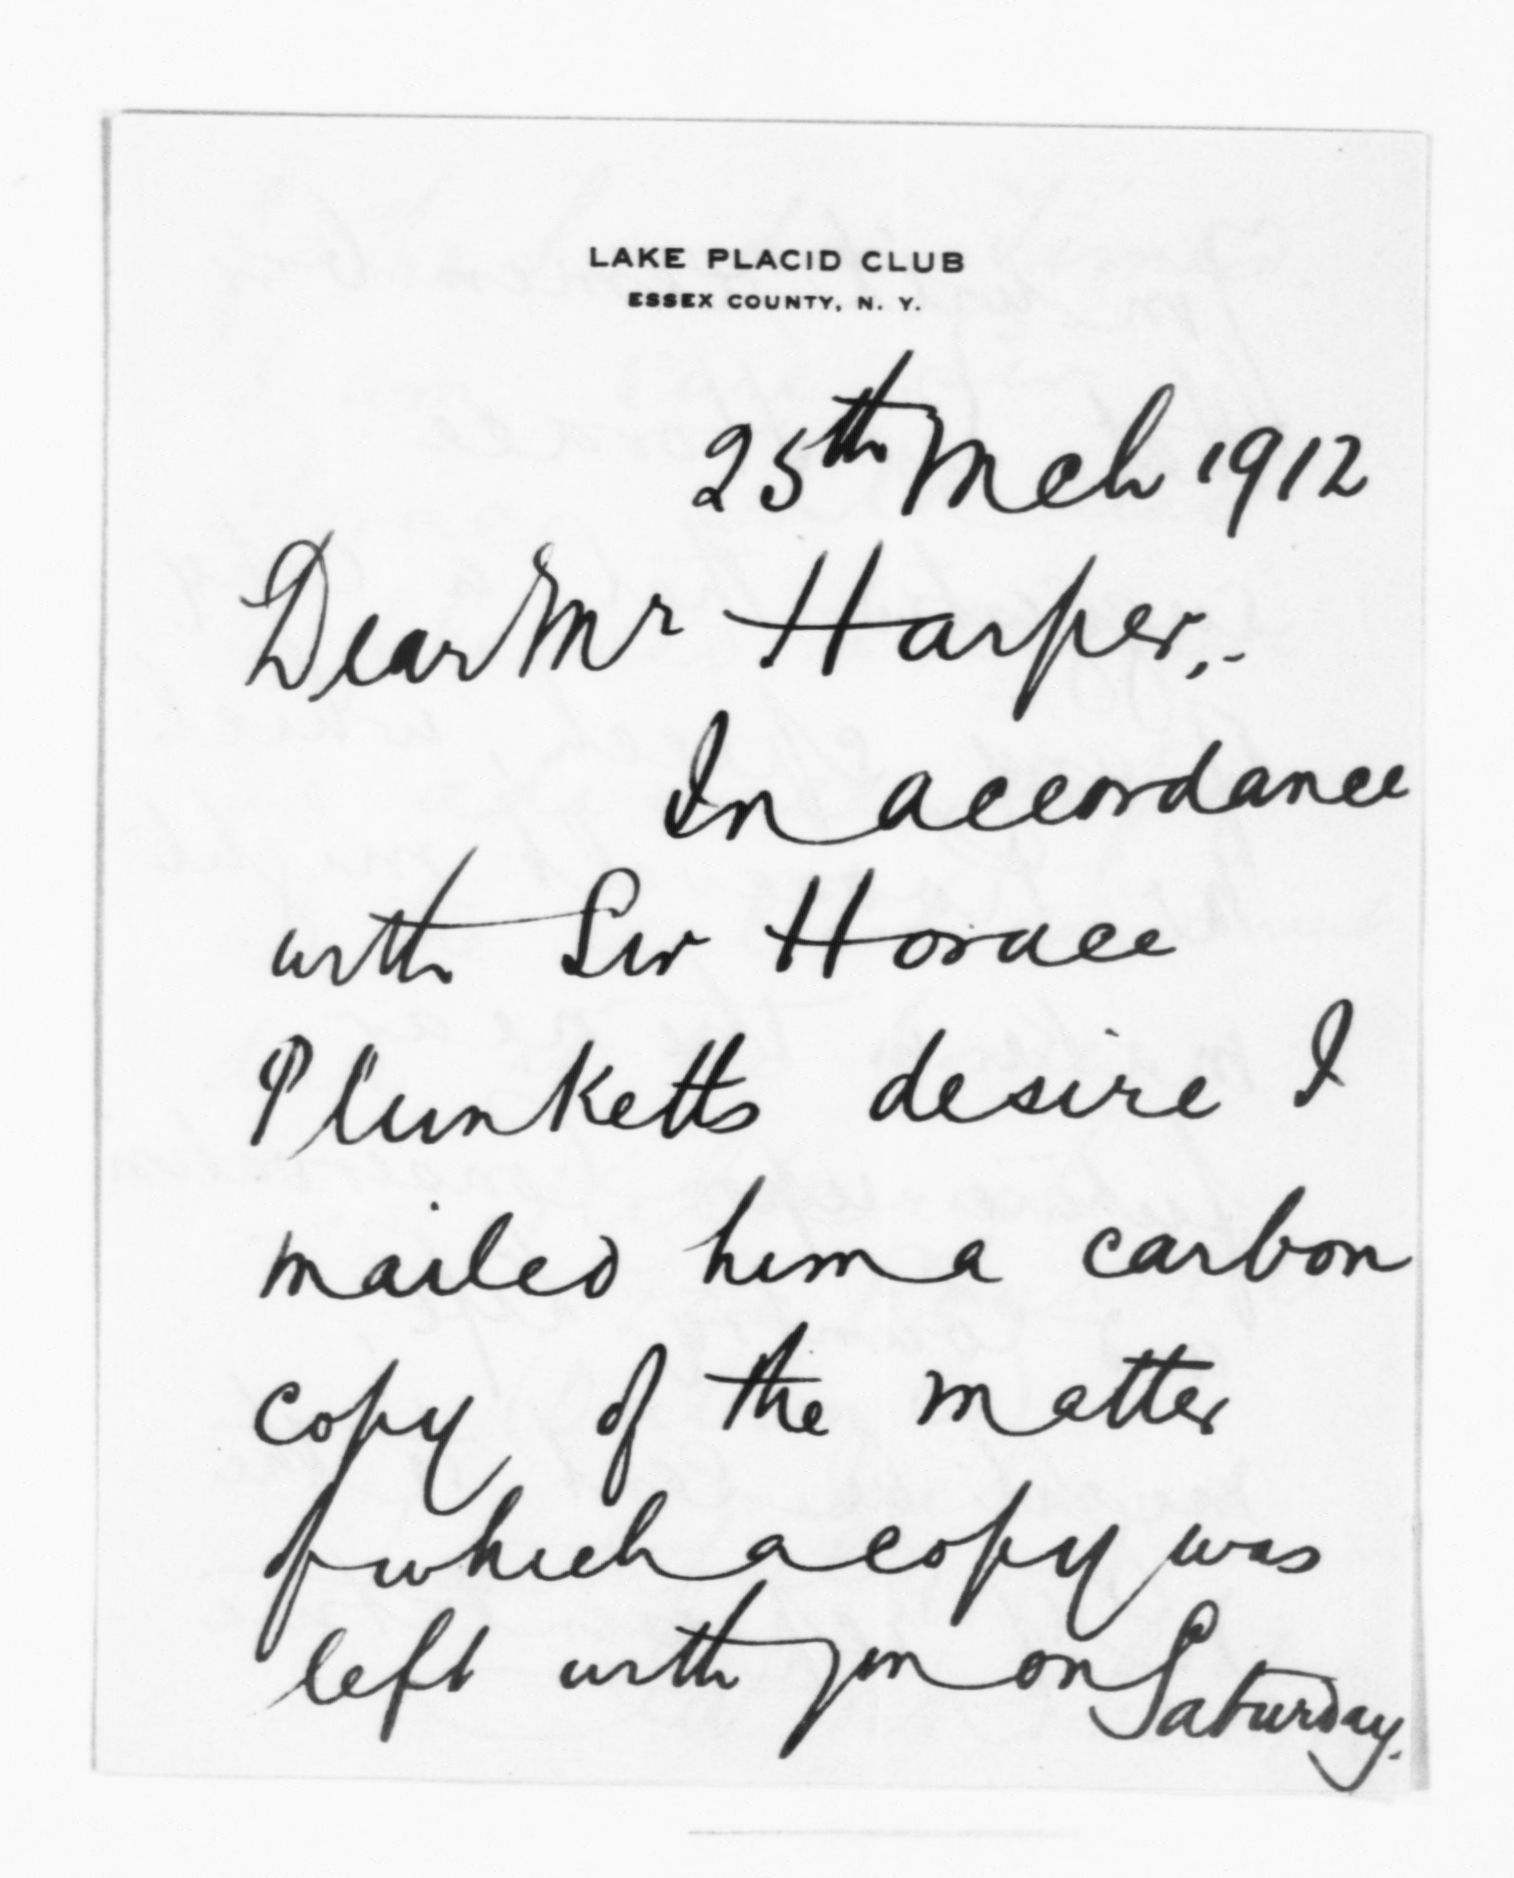 LAKE PLACID CLUB
ESSEX COUNTY, N. Y.
25th Mch 1912
Dear Mr Harper,-
In accordance
with Sir Horace
Plunketts desire I
mailed him a carbon
copy of the matter
of which a copy was
left with you on Saturday.